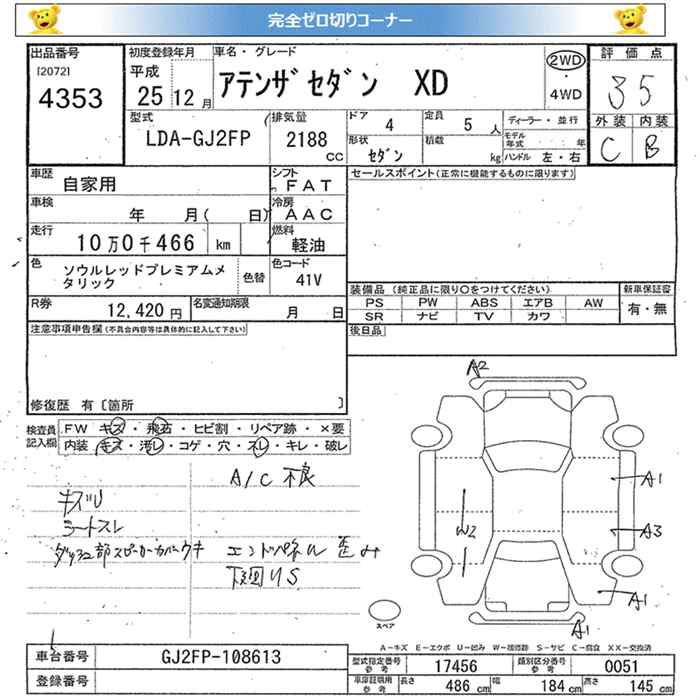 完全ゼロ切りコーナー
出品番号
[2072]
4353
初度登録年月
平成
25 12月
車名・グレード
アテンザセダン XD
2WD
・
4WD
評価点
3 5
外装 内装
C B
型式
LDA-GJ2FP
排気量
2188
CC
ドア
4
定員
5 人
形状
セダン
積載
kg
ディーラー・並行
モデル年式 年
ハンドル 左・右
車歴
自家用
シフト
FAT
車検
年 月( 日)
冷房
AAC
走行
10万0千466 km
燃料
軽油
色
ソウルレッドプレミアムメタリック
色替
色コード
41V
R券
12,420円
名変通知期限
月 日
セールスポイント(正常に機能するものに限ります)
装備品(純正品に限り○をつけてください)
PS PW ABS エアB AW
SR ナビ TV カワ
新車保証書
有・無
後日品
注意事項申告欄(不具合内容等は具体的に記入して下さい)
修復歴 有〔箇所 〕
検査員記入欄
FW キズ・飛石・ヒビ割・リペア跡・×要
内装 キズ・汚レ・コゲ・穴・スレ・キレ・破レ
A/C 不良
キズU
シートスレ
ダッシュ部スピーカーカバーウキ
エンドパネル 歪み
下回りS
A2
A1
A3
W2
A1
A1
スペア
A-キズ E-エクボ U-凹み W-補修跡 S-サビ C-腐食 XX-交換済
車台番号
GJ2FP-108613
登録番号
型式指定番号
参考
17456
類別区分番号
参考
0051
車庫証明用
参考
長さ 486cm
幅 184cm
高さ 145cm